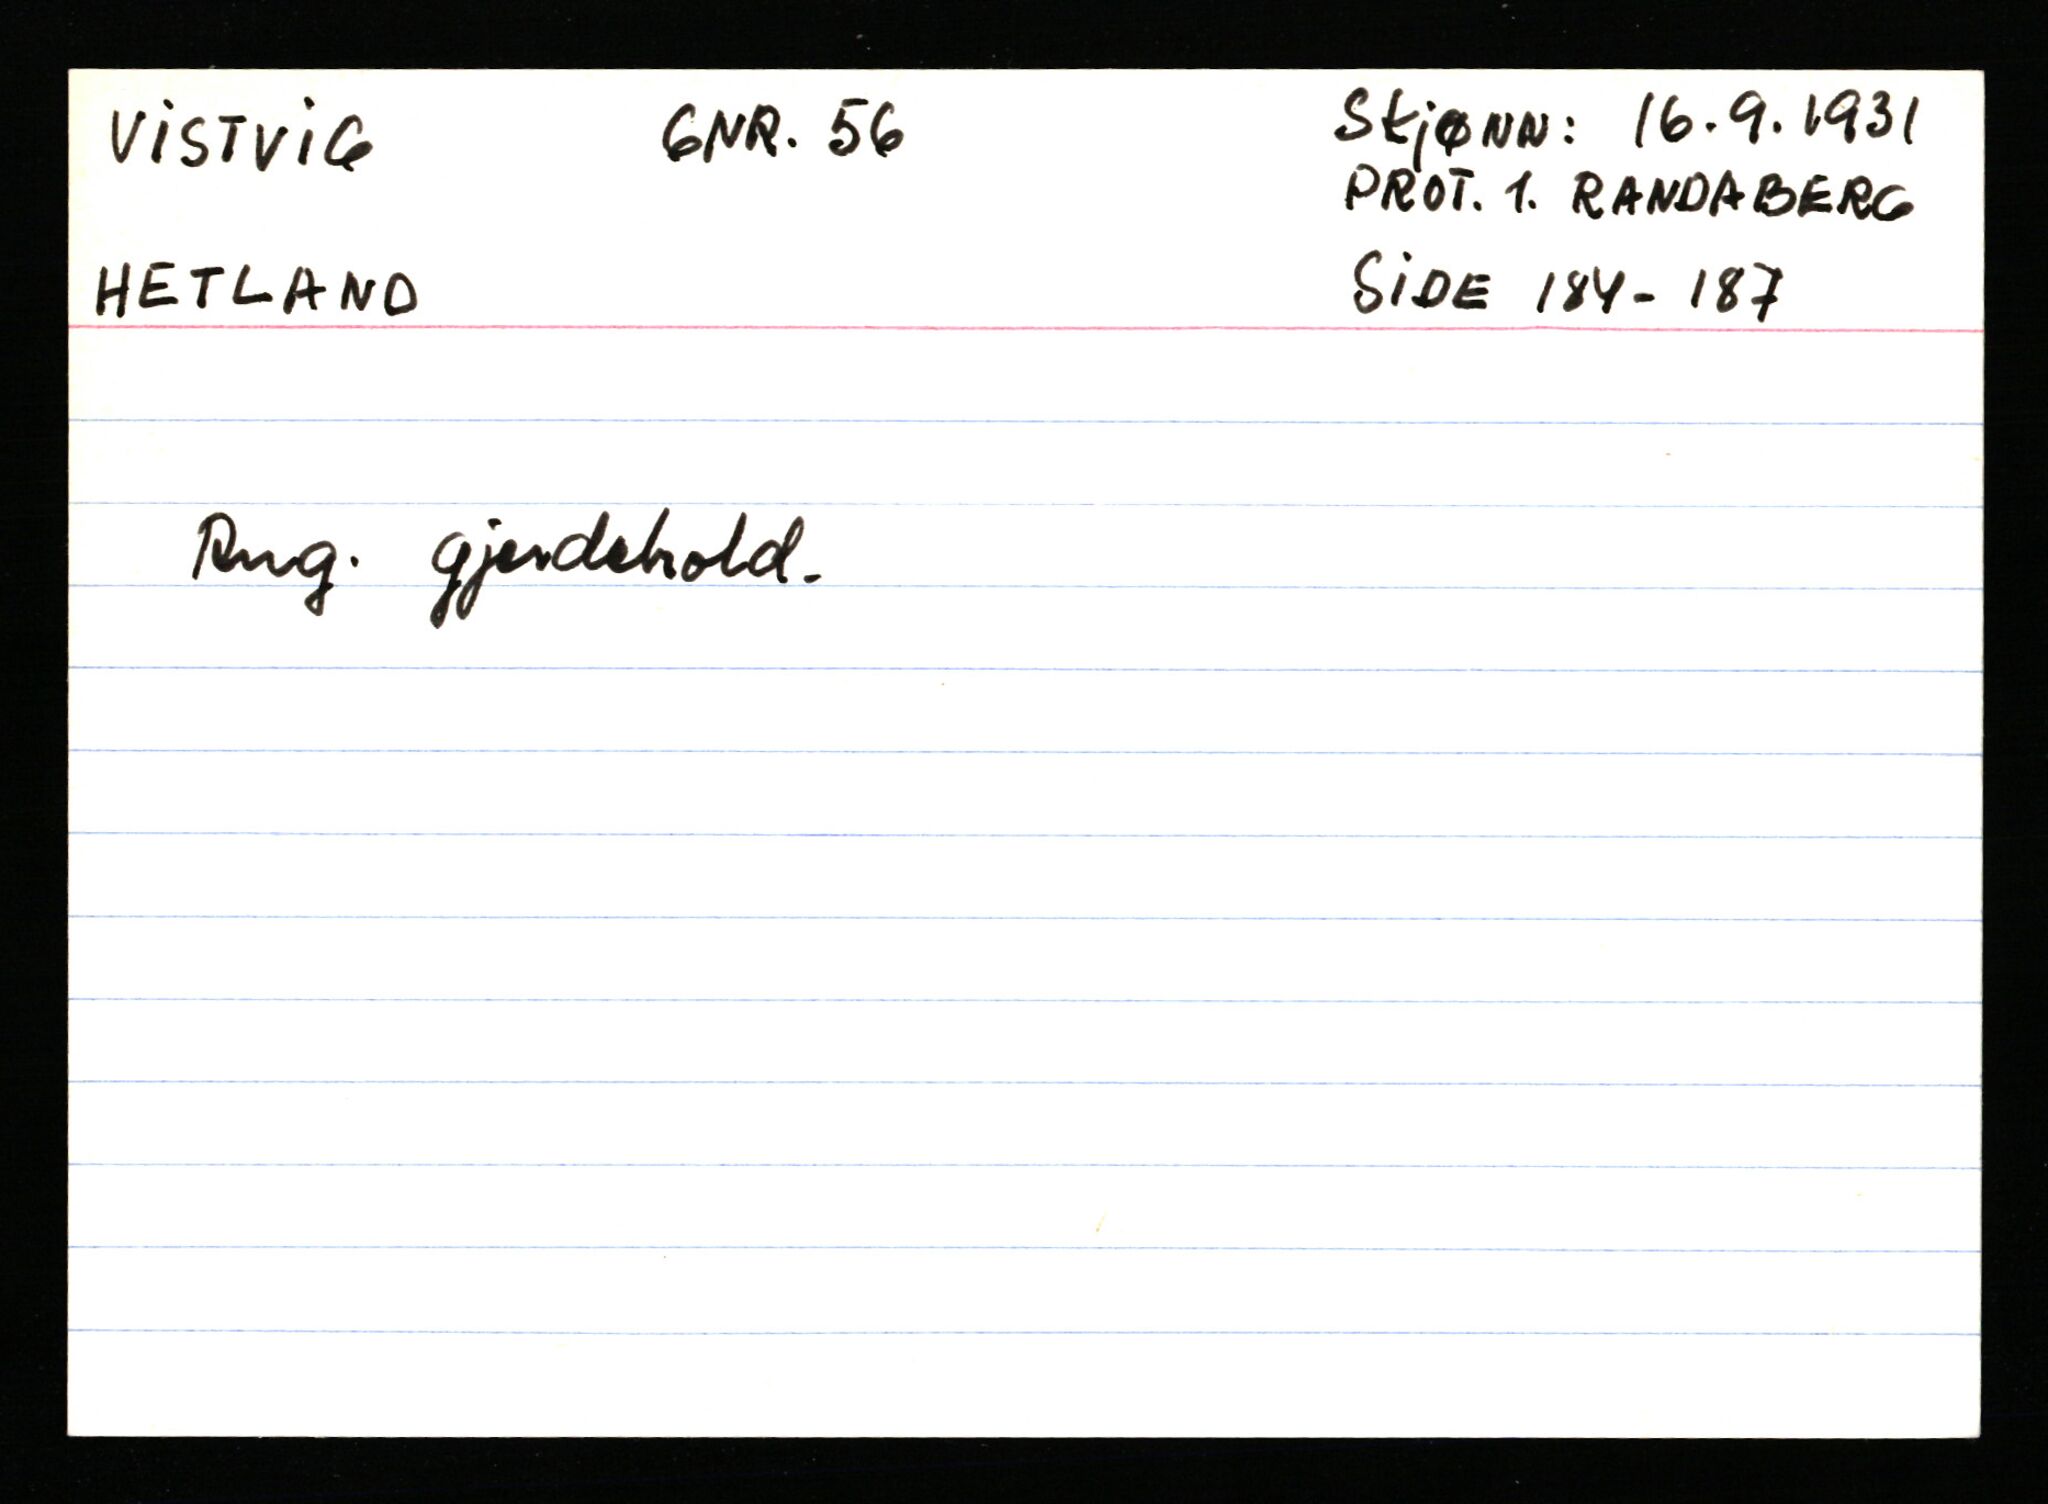 VISTVIG GNR. 56 Skjønn: 16.9.1931
PROT. 1. RANDABERG
HETLAND SIDE 184-187
Ang. gjerdehold.